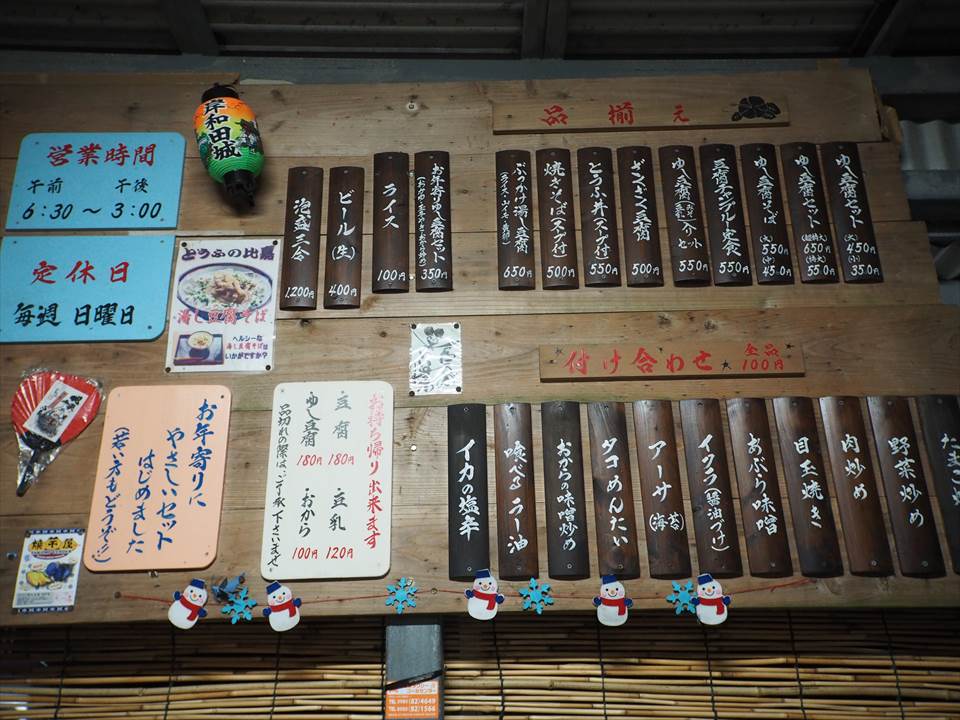 営業時間
午前 午後
6:30 ～ 3:00
定休日
毎週 日曜日
岸和田城
とうふの比嘉
湯し豆腐そば
ヘルシーな
湯し豆腐そばは
いかがですか?
品揃え
ゆし豆腐セット
(大) 450円
(小) 350円
ゆし豆腐セット
(超特大) 650円
(特大) 550円
ゆし豆腐そば
(大) 550円
(中) 450円
豆腐チャンプルー定食
550円
ゆし豆腐
セット
550円
ギンギン豆腐
500円
とうふ丼(スープ付)
550円
焼きそば(スープ付)
500円
ぶっかけ湯し豆腐
650円
お年寄りゆし豆腐セット
350円
ライス
100円
ビール(生)
400円
泡盛三合
1,200円
付け合わせ 全品100円
野菜炒め
肉炒め
目玉焼き
あぶら味噌
イクラ(醤油づけ)
アーサ(海苔)
タコめんたい
おからの味噌炒め
喰べるラー油
イカの塩辛
お年寄りに
やさしいセット
はじめました
(若い方もどうぞ!!)
お持ち帰り出来ます
豆腐 180円 豆乳 120円
ゆし豆腐 180円 おから 100円
品切れの際はご了承下さいませ
TEL 0980 (82)4649
TEL 0980 (82)1566